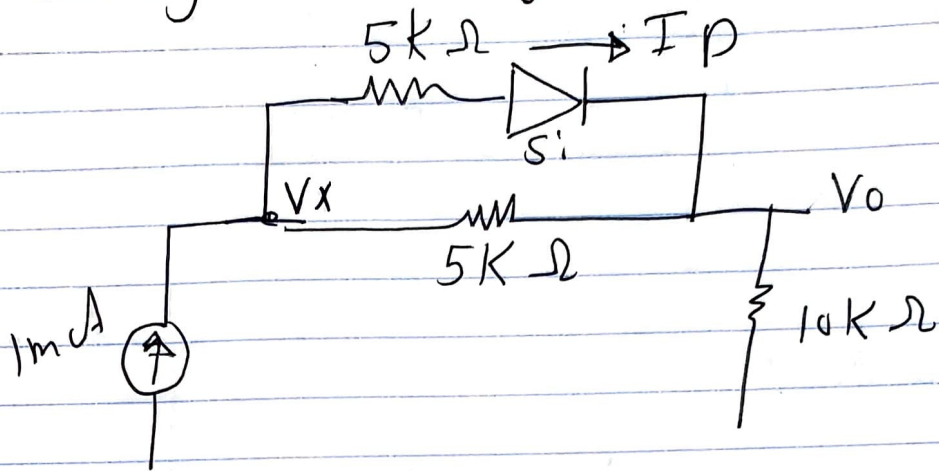 5KΩ → ID
Si
Vx
Vo
5KΩ
1mA
10KΩ